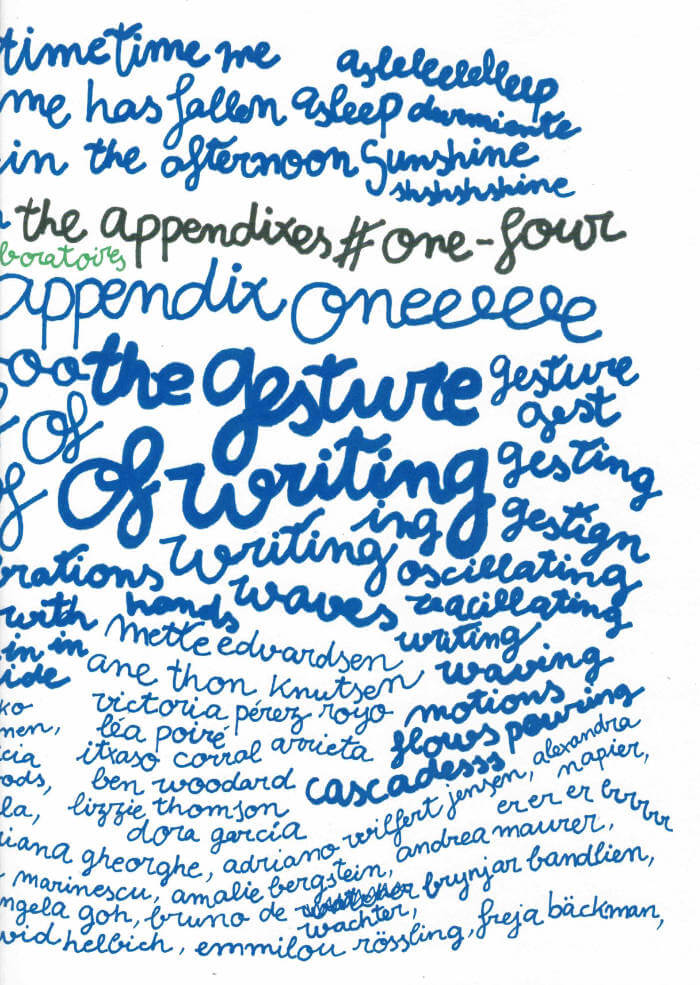 timetime me asleleeleleleep
me has fallen asleep durmiente
in the afternoon Sunshine
shshshshine
the appendixes # one-four
boratoires
appendix oneeeeee
ooo the gesture gesture
gest
of of
of writing gesting
ing gestign
brations writing oscillating
with hands waves reacillating
in in mette edvardsen writing
ide ane thon knutsen waving
ko victoria pérez royo motions
men, léa poiré flows pouring
cia itxaso corral arrieta
ods, ben woodard cascadesss
la, lizzie thomson
dora garcía
iana gheorghe, adriano wilfert jensen, alexandra
napier,
marinescu, amalie bergstein, andrea maurer, er er er brrrrr
ngela goh, bruno de wachter, brynjar bandlien,
vid helbich, emmilou rössling, freja bäckman,